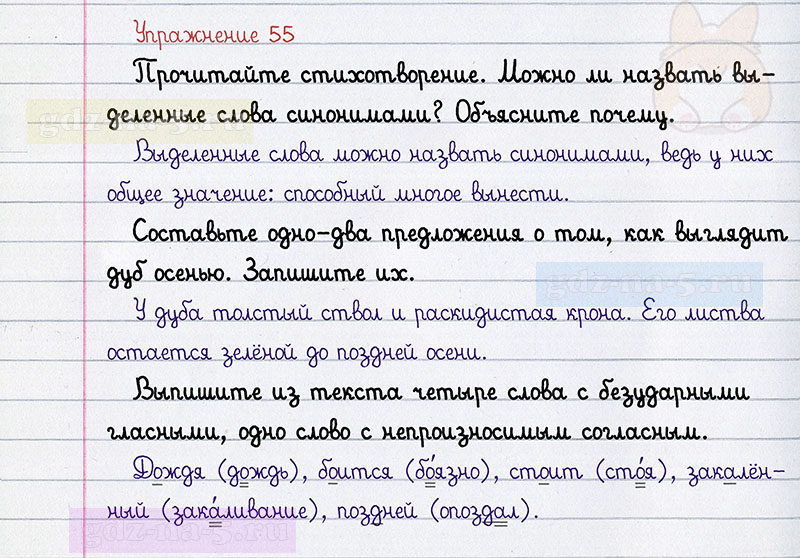 Упражнение 55
Прочитайте стихотворение. Можно ли назвать вы-
деленные слова синонимами? Объясните почему.
gdz-na-5.ru
Выделенные слова можно назвать синонимами, ведь у них
общее значение: способный многое вынести.
Составьте одно-два предложения о том, как выглядит
дуб осенью. Запишите их.
gdz-na-5.ru
У дуба толстый ствол и раскидистая крона. Его листва
остается зелёной до поздней осени.
Выпишите из текста четыре слова с безударными
гласными, одно слово с непроизносимым согласным.
Дождя (дождь), боится (бо́язно), стоит (сто́я), закалён-
ный (зака́ливание), поздней (опоздал).
gdz-na-5.ru